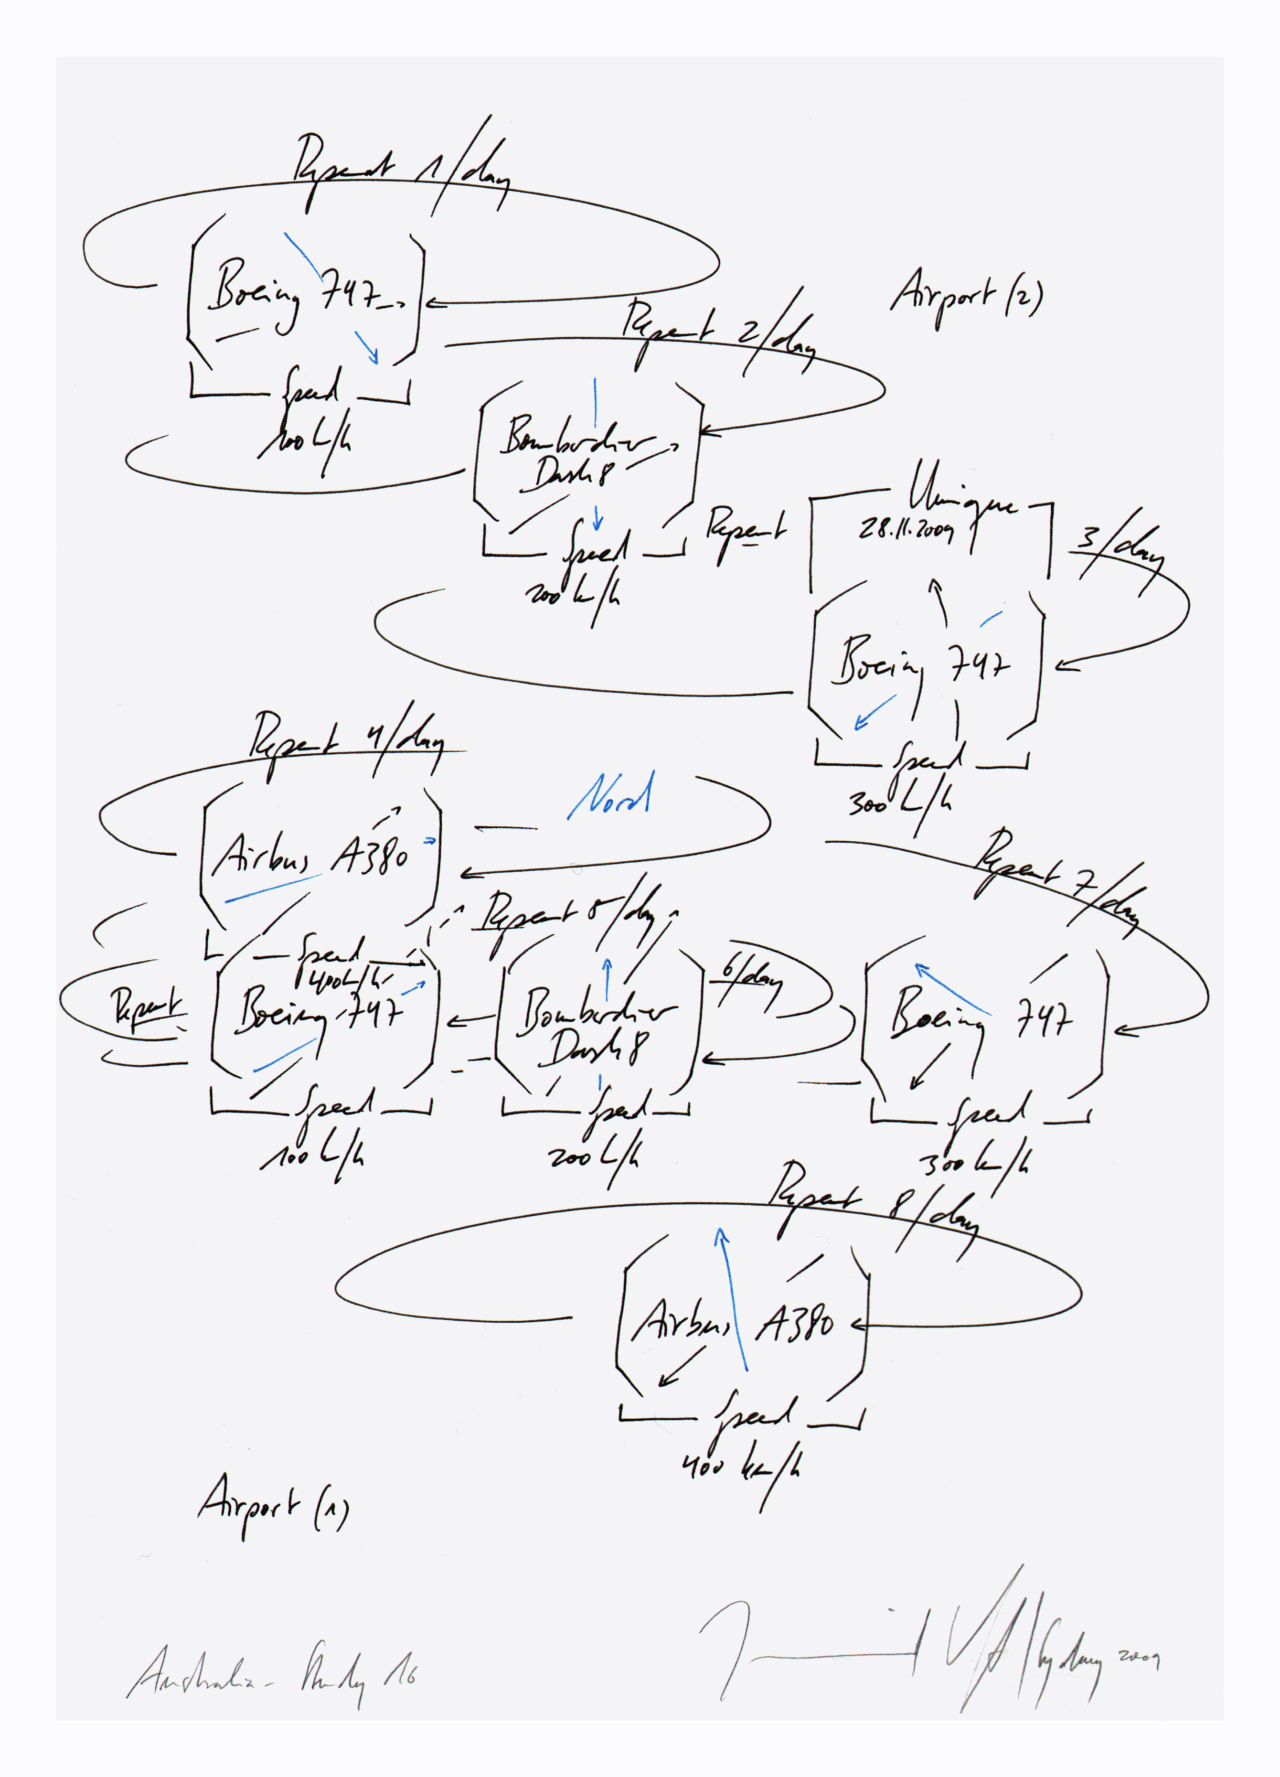 Repeat 1/day
Boeing 747
Speed
100 k/h
Airport (2)
Repeat 2/day
Bombardier
Dash 8
Speed
200 k/h
Repeat
3/day
Unique
28.11.2009
Boeing 747
Speed
300 k/h
Repeat 4/day
Airbus A380
Nord
Speed
400 k/h
Repeat 5/day
Repeat
Boeing 747
Speed
100 k/h
6/day
Bombardier
Dash 8
Speed
200 k/h
Repeat 7/day
Boeing 747
Speed
300 km/h
Repeat 8/day
Airbus A380
Speed
400 km/h
Airport (1)
Australia - Study 16
Sydney 2009